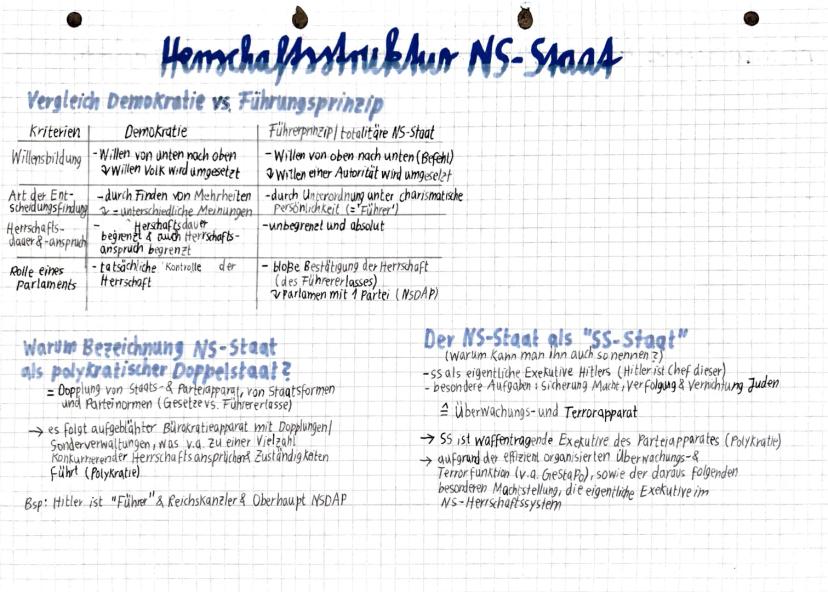 Herrschaftsstruktur NS-Staat
Vergleich Demokratie vs. Führungsprinzip
Kriterien Demokratie Führerprinzip/totalitäre NS-Staat
Willensbildung - Willen von unten nach oben - Willen von oben nach unten (Befehl)
↳ Willen Volk wird umgesetzt ↳ Willen einer Autorität wird umgesetzt
Art der Ent- - durch Finden von Mehrheiten - durch Unterordnung unter charismatische
scheidungsfindung ↳ = unterschiedliche Meinungen Persönlichkeit (= "Führer")
Herrschafts- - Herschaftsdauer - unbegrenzt und absolut
dauer & -anspruch begrenzt & auch Herrschafts-
anspruch begrenzt
Rolle eines - tatsächliche Kontrolle der - bloße Bestätigung der Herrschaft
Parlaments Herrschaft (des Führererlasses)
↳ Parlamen mit 1 Partei (NSDAP)
Warum Bezeichnung NS-Staat
als polykratischer Doppelstaat?
= Dopplung von Staats- & Parteiapparat, von Staatsformen
und Parteinormen (Gesetze vs. Führererlasse)
→ es folgt aufgeblähter Bürokratieapparat mit Dopplungen/
Sonderverwaltungen, was v.a. zu einer Vielzahl
konkurrierender Herrschaftsansprüche & Zuständigkeiten
führt (Polykratie)
Bsp: Hitler ist "Führer" & Reichskanzler & Oberhaupt NSDAP
Der NS-Staat als "SS-Staat"
(Warum kann man ihn auch so nennen?)
- SS als eigentliche Exekutive Hitlers (Hitler ist Chef dieser)
- besondere Aufgaben: Sicherung Macht, Verfolgung & Vernichtung Juden
≙ Überwachungs- und Terrorapparat
→ SS ist waffentragende Exekutive des Parteiapparates (Polykratie)
→ aufgrund der effizient organisierten Überwachungs- &
Terrorfunktion (v.a. GeStaPo), sowie der daraus folgenden
besonderen Machtstellung, die eigentliche Exekutive im
NS-Herrschaftssystem